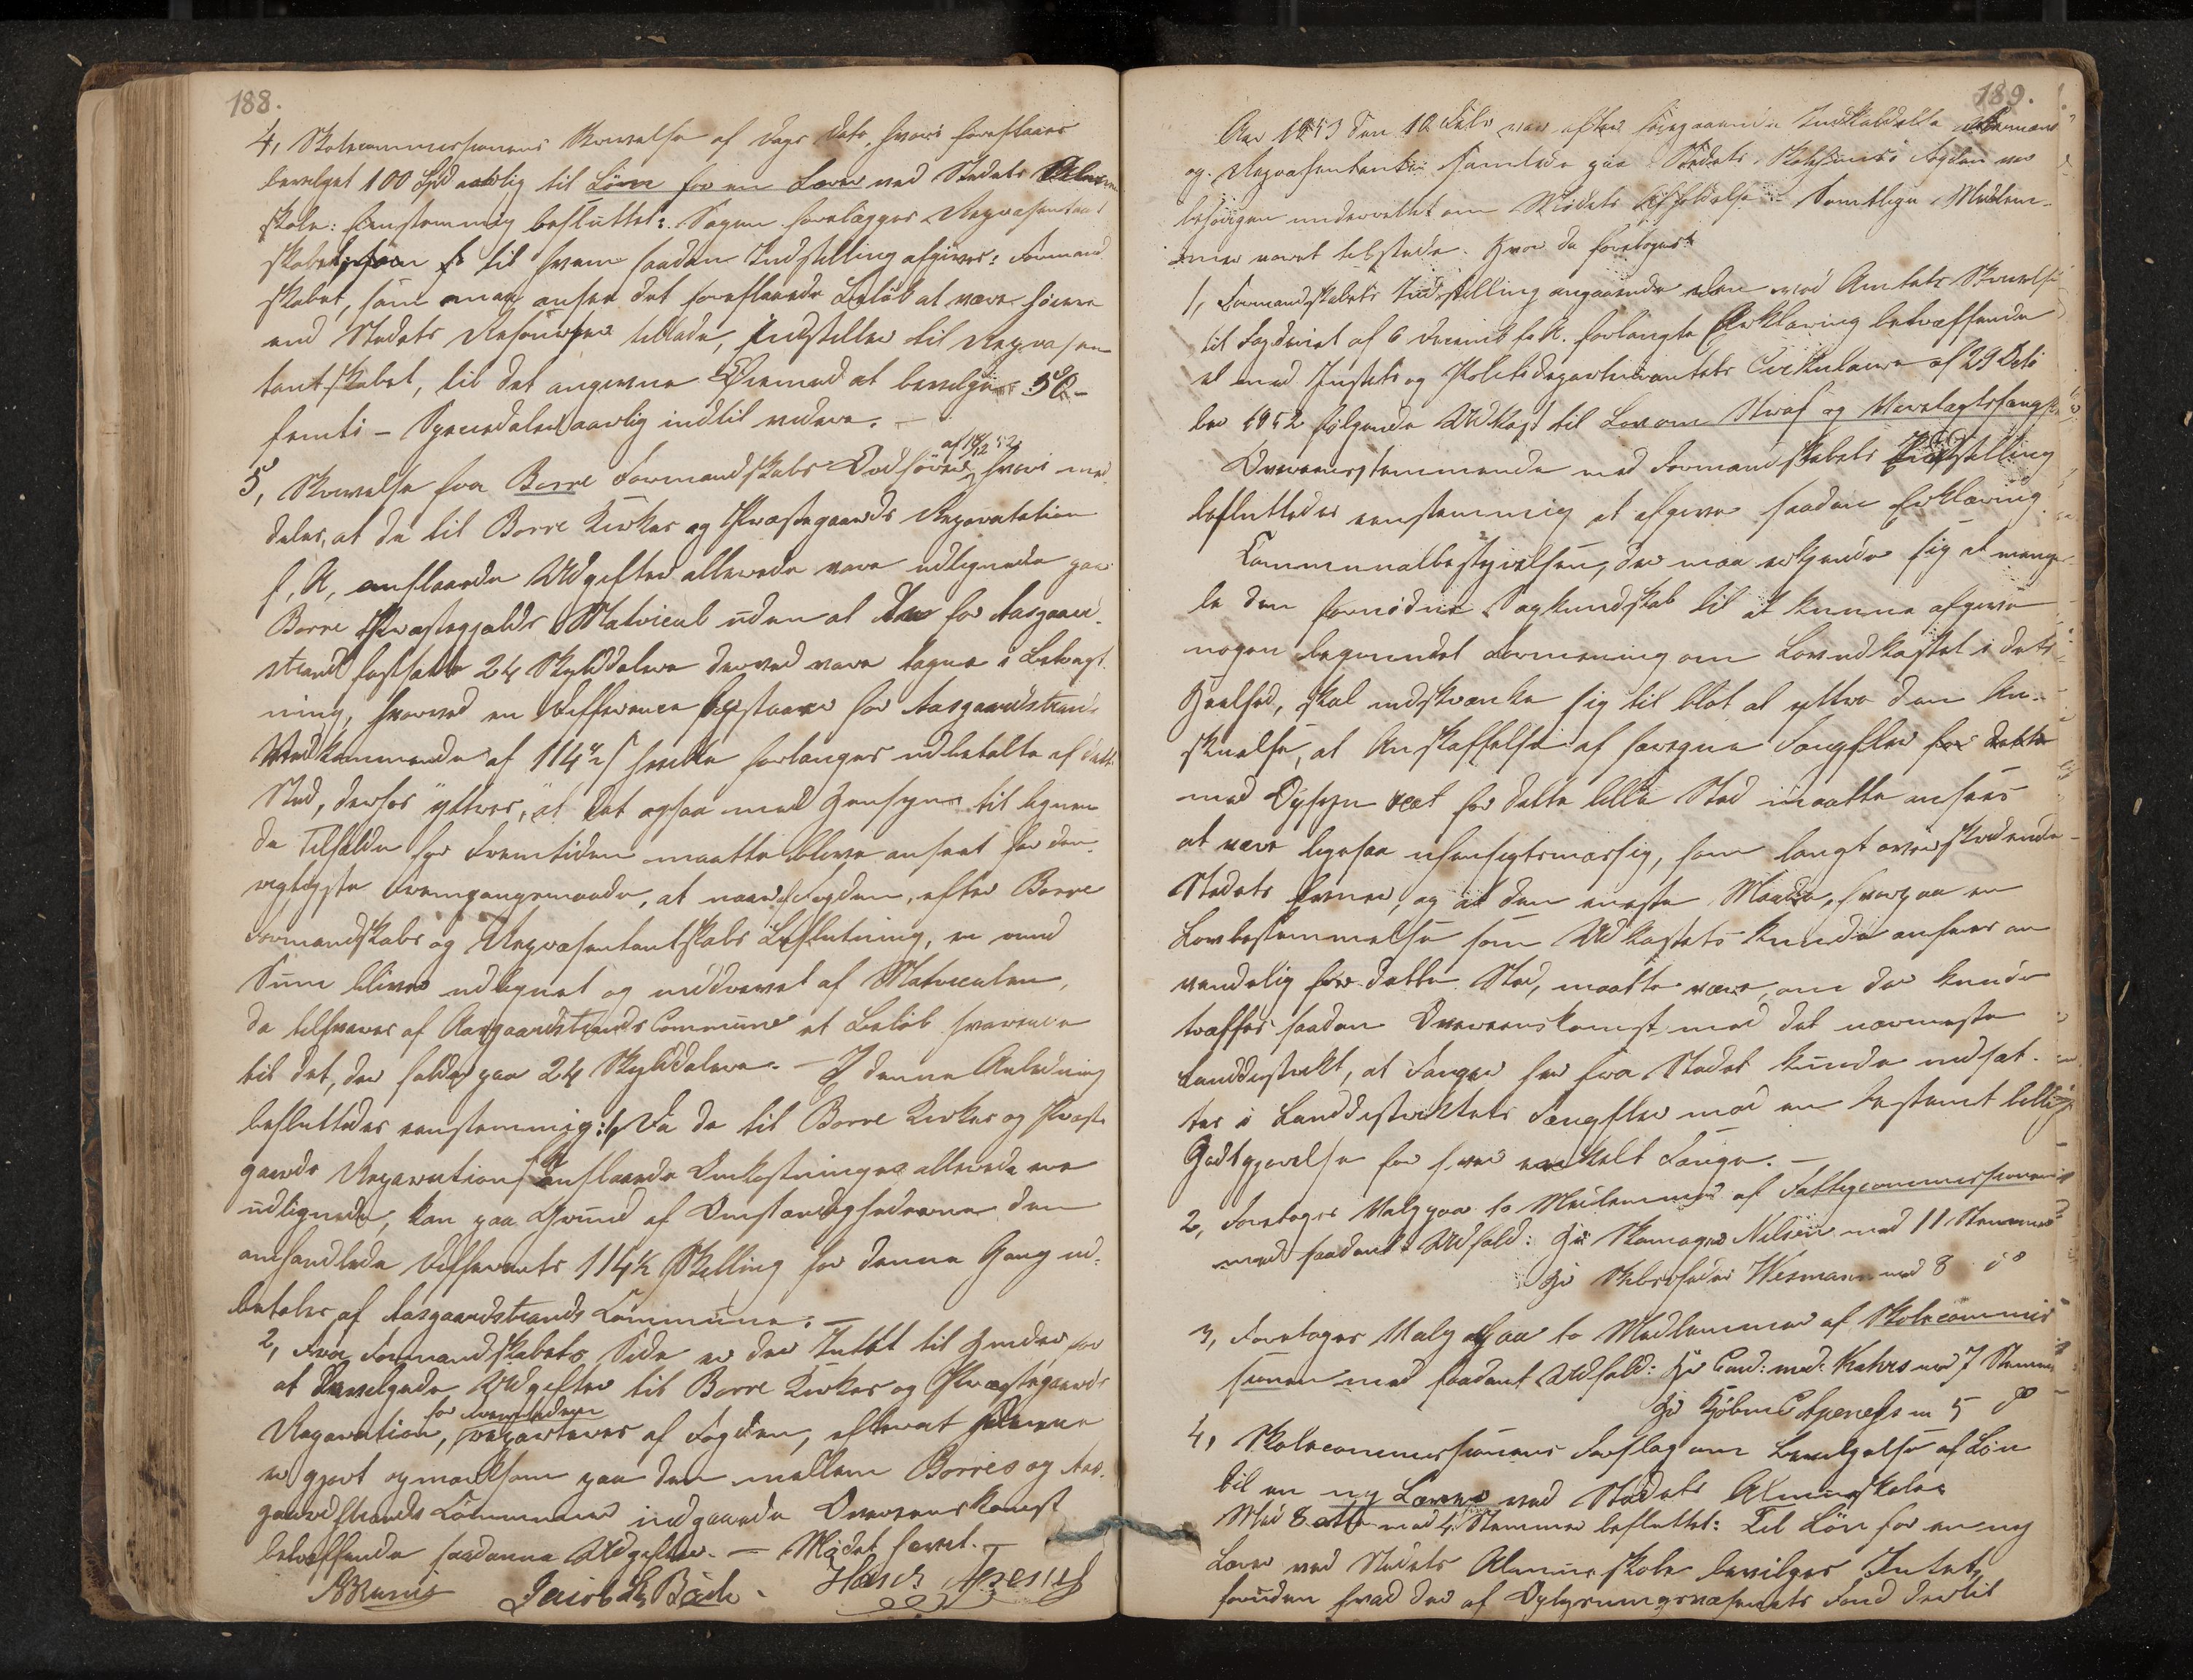 188.
4, Skolecommissionens Skrivelse af Dags Dato, hvori foreslaaes
bevilget 100 Spd aarlig til Løn for en Lærer ved Stedets Almue
skole: Eenstemmig besluttet: Sagen forelægges Repræsentant
skabet, til hvem saadan Indstilling afgives: Formand
skabet, som man anseer det foreslaaede Beløb at være større
end Stedets Resourser tillade, indstiller til Repræsen
tantskabet, til det angivne Øiemed at bevilge 50 -
femti - Speciedaler aarlig indtil videre. -
5, Skrivelse fra Borre Formandskabs Ordfører af 18/12 52, hvori med
deles, at da til Borre Kirkes og Præstegaards Reparation
f. A. anslaaede Udgifter allerede vare udlignede paa
Borre Præstegjelds Matricul uden at de for Aasgaard-
strand fastsatte 24 Skylddalere derved vare tagne i Betragt
ning, hvorved en Difference opstaaer for Aasgaardstrands
Vedkommende af 114½ s hvilke forlanges udbetalte af dette
Sted, derhos yttres, at det ogsaa med Hensyn til lignen
de Tilfælde for Fremtiden maatte blive anseet for den
rigtigste Fremgangsmaade, at naar Fogden, efter Borre
Formandskabs og Repræsentantskabs Beslutning, en rund
Sum bliver udlignet og inddrevet af Matriculen,
da tilsvares af Aasgaardstrands Commune et Beløb svarende
til det, der falder paa 24 Skylddalere. - I denne Anledning
besluttedes eenstemmig: 1, Da de til Borre Kirkes og Præste
gaards Reparation anslaaede Omkostninger allerede ere
udlignede, kan paa Grund af Omstændighederne den
omhandlede Differents 114½ Skilling for denne Gang ud-
betales af Aasgaardstrands Commune. -
2, Fra Formandskabets Side er der Intet til Hinder for
at bevilgede Udgifter til Borre Kirkes og Præstegaards
Reparation, for Fremtiden reparteres af Fogden, efterat denne
er gjort opmærksom paa den mellem Borres og Aas-
gaardstrands Communer indgaaede Overeenskomst
betræffende saadanne Udgifter. - Mødet hævet. -
Jacob Bache
189.
Aar 1853 den 10 Febr var efter foregaaende Indkaldelse Formænd
og Repræsentanter samlede paa Stedets Skolehuus. Fogden var
behørigen underrettet om Mødets Afholdelse. Samtlige Medlem-
mer varet tilstede. Hvor da foretoges:
1, Formandskabets Indstilling angaaende den med Amtets Skrivelse
til Fogderiet af 6 Decemb f. A. forlangte Erklæring betræffende
et med Justits og Politidepartementets Circulaire af 29 Octo
ber 1852 følgende Udkast til Lov om Straf og Varetægtsfængsler
Overeensstemmende med Formandskabets Indstilling
besluttedes eenstemmig at afgive saadan Erklæring.
Communalbestyrelsen, der maa erkjende sig at mang-
le den fornødne Sagkundskab til at kunne afgive
nogen begrundet Formening om Lovudkastet i dets
Heelhed, skal indskrænke sig til blot at yttre den An-
skuelse, at Anskaffelse af særegne Fængsler
med Opsyn ved for dette lille Sted maatte ansees
at være ligesaa uhensigtsmæssig, som langt overskridende
Stedets Evner, og at den eneste Maade, hvorpaa en
Lovbestemmelse som Udkastets kunde ansees an
vendelig for dette Sted, maatte være, om der kunde
træffes saadan Overeenskomst med det nærmeste
Landdistrikt, at Fanger her fra Stedet kunde indsæt-
tes i Landdistriktets Fængsler mod en bestemt billig
Godtgjørelse for hver enkelt Fange. -
2, Foretoges Valg paa to Medlemmer af Fattigcommissionen
med saadant Udfald: Hr Skomager Nielsen med 11 Stemmer
Hr Skibsrheder Wesmann med 8 do
3, Foretoges Valg paa to Medlemmer af Skolecommis
sionen med saadant Udfald: Hr Cand: med: Kahrs med 7 Stemmer
Hr Kjøbmd Apenes m 5 do
4, Skolecommissionens Forslag om Bevilgelse af Løn
til en ny Lærer ved Stedets Almueskole.
Med 8 otte mod 4 Stemmer besluttet: Til Løn for en ny
Lærer ved Stedets Almueskole bevilges Intet,
foruden hvad der af Oplysningsvæsenets Fond dertil